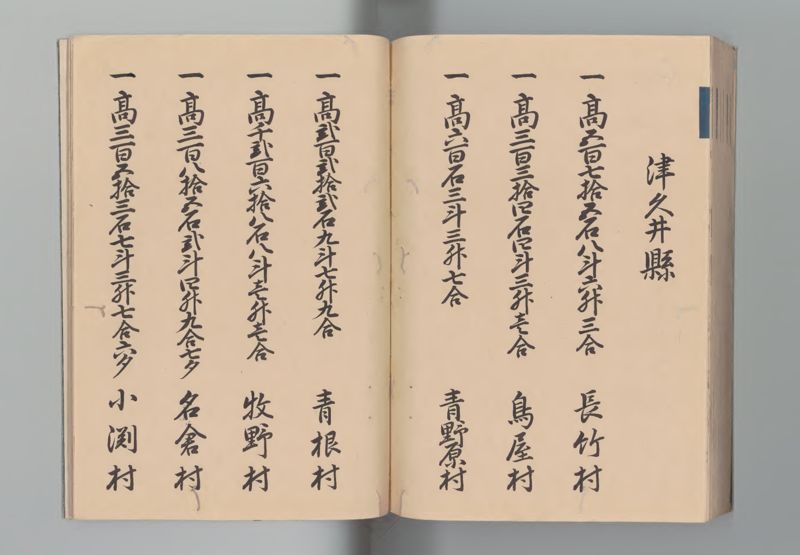 津久井縣
一 高五百七拾五石八斗六升三合 長竹村
一 高三百三拾四石四斗三升壱合 鳥屋村
一 高六百石三斗三升七合 青野原村
一 高弐百弐拾弐石九斗七升九合 青根村
一 高千弐百六拾八石八斗壱升壱合 牧野村
一 高三百八拾五石弐斗四升九合七夕 名倉村
一 高三百五拾三石七斗三升七合六夕 小渕村